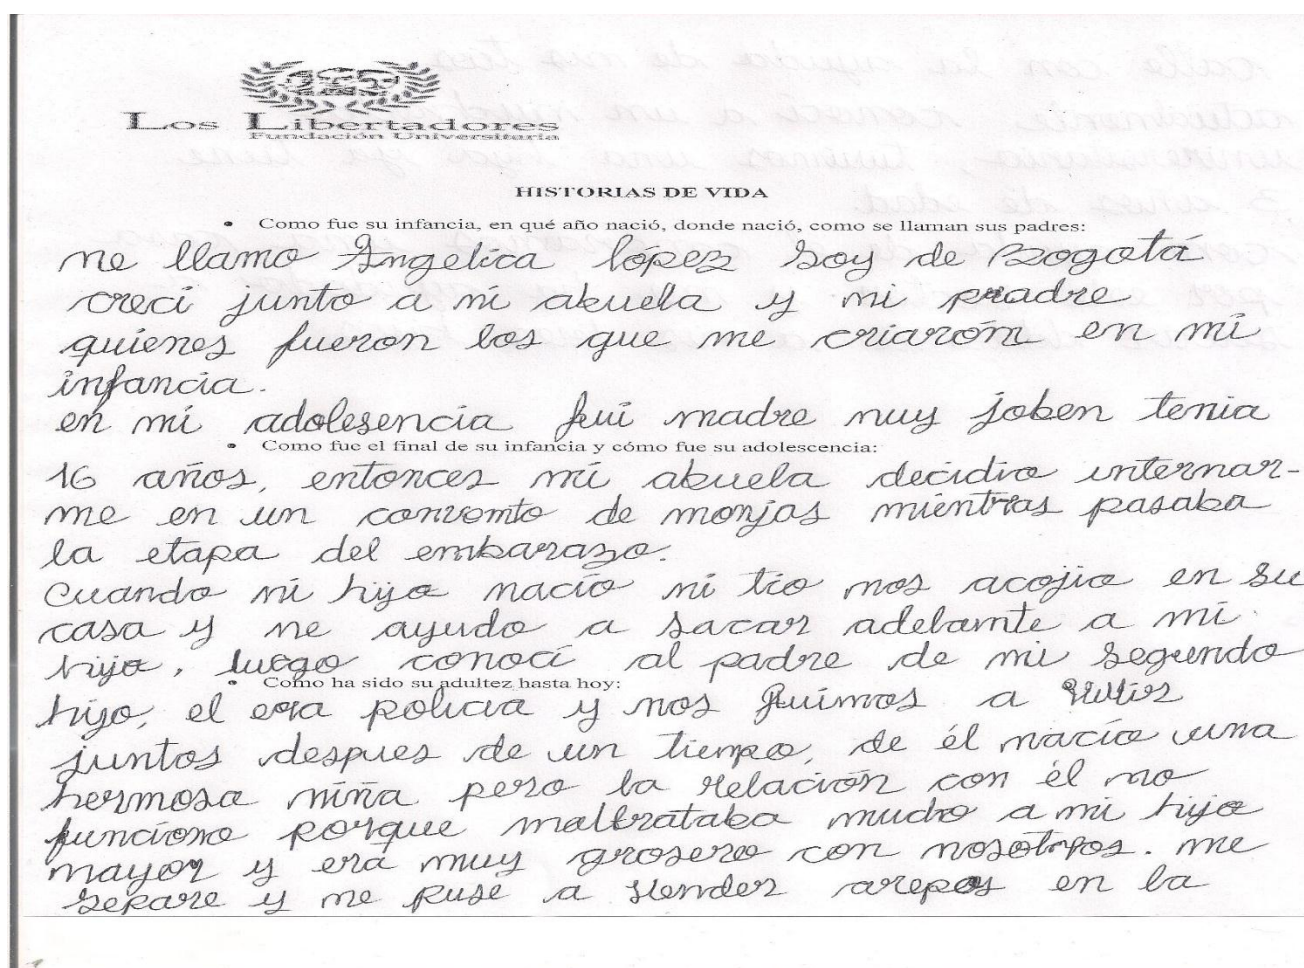 Los Libertadores
Fundación Universitaria
HISTORIAS DE VIDA
• Como fue su infancia, en qué año nació, donde nació, como se llaman sus padres:
me llamo Angélica lópez soy de Bogotá
creci junto a mi abuela y mi pradre
quienes fueron los que me criarón en mi
infancia.
en mi adolesencia fui madre muy joben tenia
• Como fue el final de su infancia y cómo fue su adolescencia:
16 años, entonces mi abuela decidio internar-
me en un convento de monjas mientras pasaba
la etapa del embarazo.
Cuando mi hijo nacio mi tio nos acojio en su
casa y me ayudo a sacar adelante a mi
hijo, luego conocí al padre de mi segundo
• Como ha sido su adultez hasta hoy:
hijo, el era policia y nos fuimos a vivir
juntos despues de un tiempo, de él nacio una
hermosa niña pero la relación con él no
funciono porque maltrataba mucho a mi hijo
mayor y erá muy grosero con nosotros. me
separe y me puse a vender arepas en la